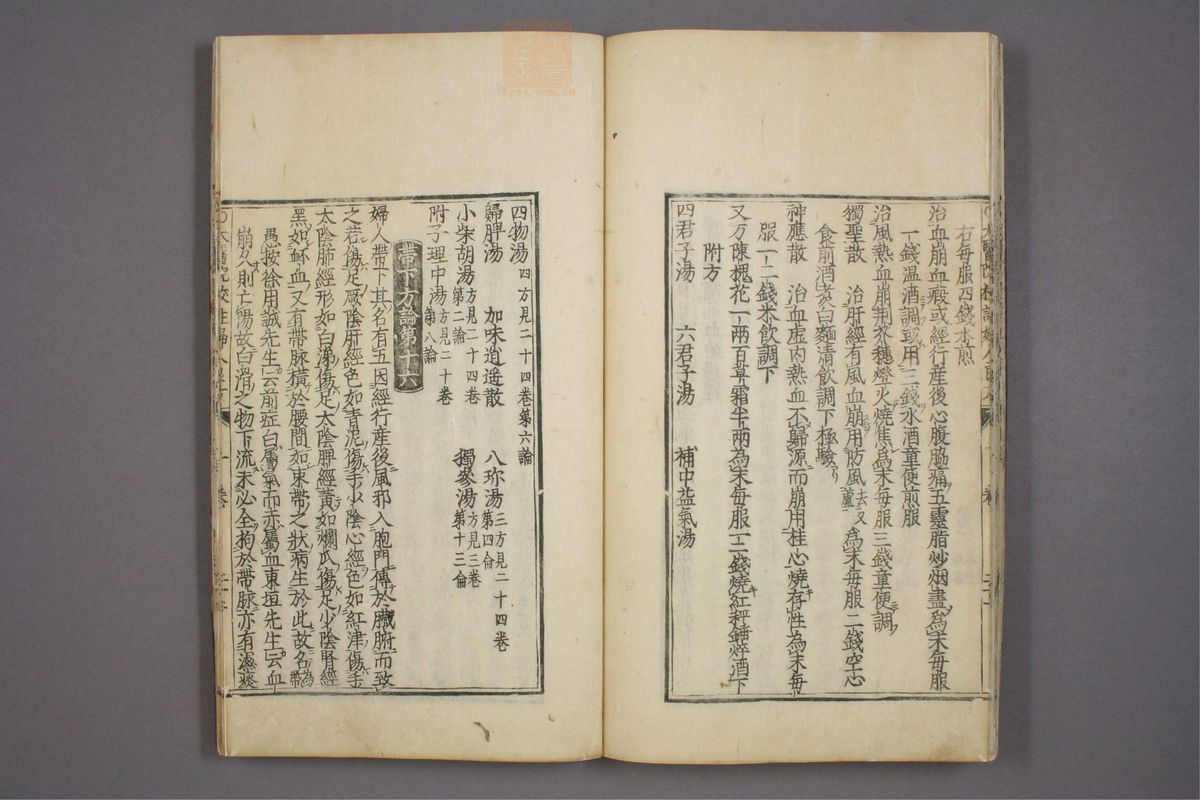 右每服四錢水煎
治血崩血瘕或經行産後心腹脇痛五靈脂炒烟盡為末每服
一錢温酒調或用二錢水酒童便煎服
治風熱血崩荆芥穗燈火燒焦為末每服三錢童便調
獨聖散 治肝經有風血崩用防風去叉蘆為末每服二錢空心
食前酒煑白麵清飲調下極驗
神應散 治血虚内熱血不歸源而崩用桂心燒存性為末每
服一二錢米飲調下
附方
又方陳槐花一兩百草霜半兩為末每服一二錢燒紅秤錘焠酒下
四君子湯 六君子湯 補中益氣湯
四物湯四方見二十四卷第六論
歸脾湯 加味逍遥散 八珎湯三方見二十四卷第四侖
小柴胡湯方見二十四卷第二論 獨參湯方見三卷第十三侖
附子理中湯方見二十卷第八論
帶下方論第十六
婦人帶下其名有五因經行産後風邪入胞門傳於臟腑而致
之若傷足厥陰肝經色如青泥傷手少陰心經色如紅津傷手
太陰肺經形如白涕傷足太陰脾經黃如爛瓜傷足少陰腎經
黑如衃血又有帶脉橫於腰間如束帶之狀病生於此故名為帶
愚按徐用誠先生云前症白屬氣而赤屬血東垣先生云血
崩久則亡陽故白滑之物下流未必全拘於帶脉亦有濕痰